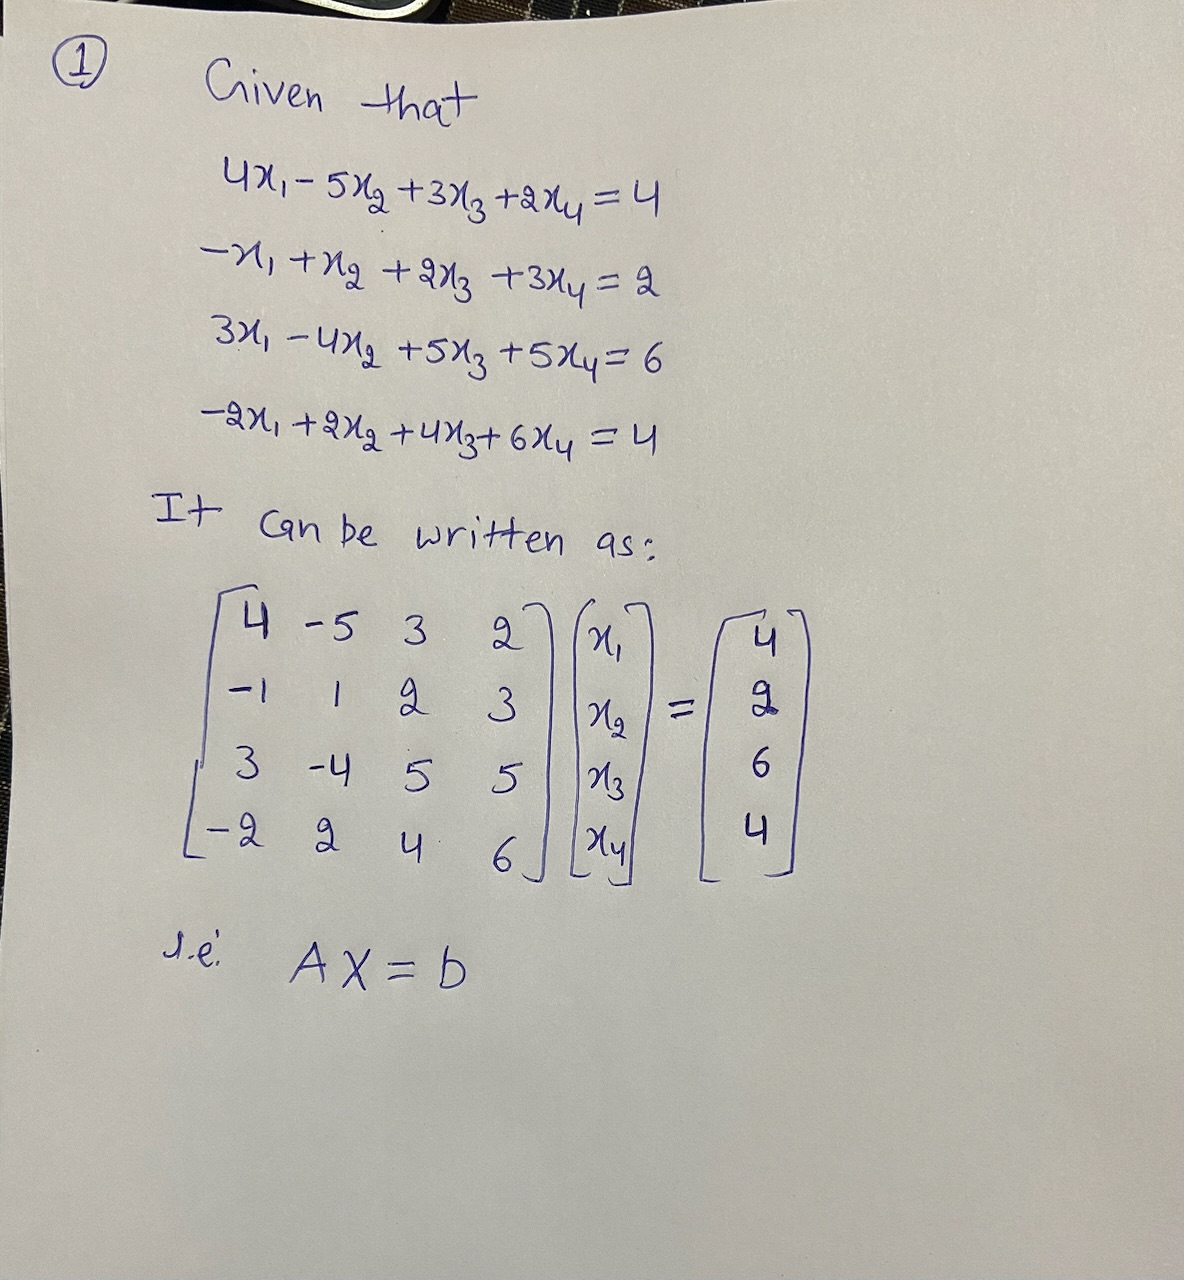 ①
Given that
4x₁ - 5x₂ + 3x₃ + 2x₄ = 4
-x₁ + x₂ + 2x₃ + 3x₄ = 2
3x₁ - 4x₂ + 5x₃ + 5x₄ = 6
-2x₁ + 2x₂ + 4x₃ + 6x₄ = 4
It can be written as:
[4 -5 3 2] [x₁] = [4]
[-1 1 2 3] [x₂] = [2]
[3 -4 5 5] [x₃] = [6]
[-2 2 4 6] [x₄] = [4]
i.e. AX = b